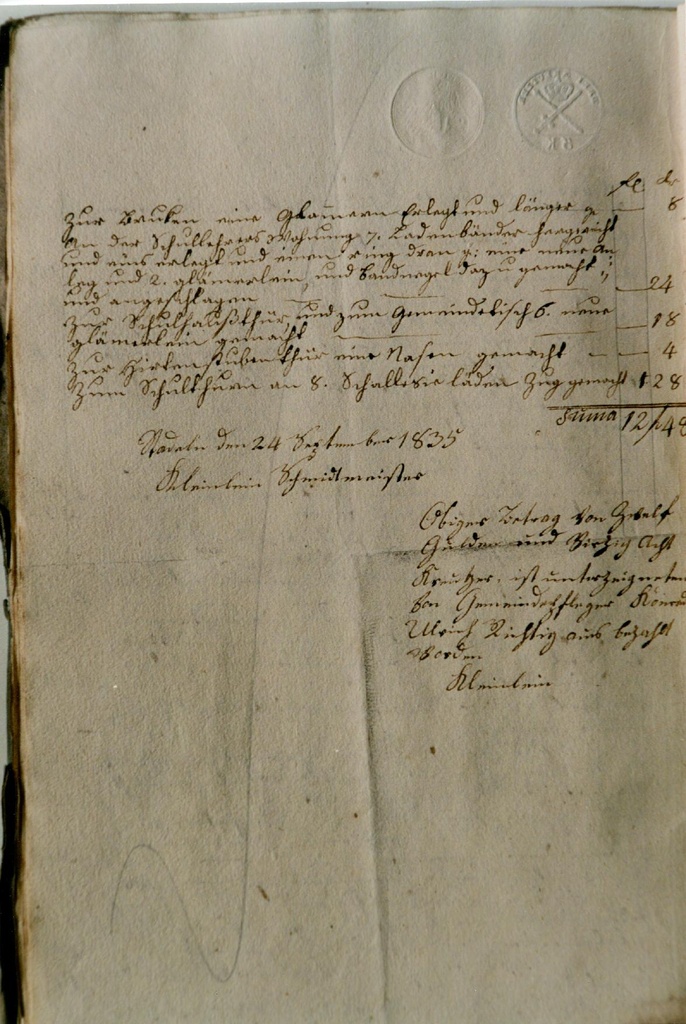 fl. kr
Zur Bruken eine Glamern Erlegt und länger g — 8
An der Schullehrers Wohnung 7. Ladenbänder hergericht
und eins erlegt und einen Ring dran g: eine neue An
leg und 2. glämerlein, und bandnegel dazu gemacht
und angeschlagen — 24
Zur Schulhaußthür, und zum Gemeindetisch 6. neue
glämerlein gemacht — 18
Zur Hirtenstubenthür eine Nasen gemacht — 4
Zum Schulthurn an 8. Schallesie läden Zug gemacht 1 28
Suma 12/48
Stadeln den 24 September 1835
Kleinlein Schmidtmeister
Obiger Betrag von Zwelf
Gulden und Virzig Acht
Kreutzer. ist unterzeigneten
von Gemeindepfleger Konrad
Ulrich Richtig aus bezahlt
worden
Kleinlein